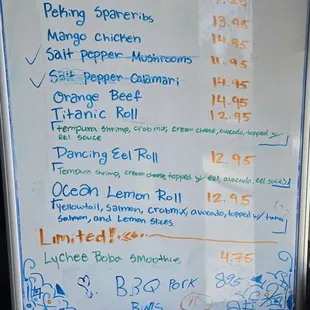 Peking Spareribs 13.95
Mango chicken 14.95
Salt pepper Mushrooms 11.95
Salt pepper Calamari 14.95
Orange Beef 14.95
Titanic Roll 12.95
tempura shrimp, crab mix, cream cheese, avocado, topped w/
eel sauce
Dancing Eel Roll 12.95
Tempura shrimp, cream cheese topped w/ eel, avocado, eel sauce
Ocean Lemon Roll 12.95
yellowtail, salmon, crab mix, avocado, topped w/ tuna,
salmon, and Lemon slices.
Limited!
Lychee Boba smoothie 4.75
BBQ Pork 8.95